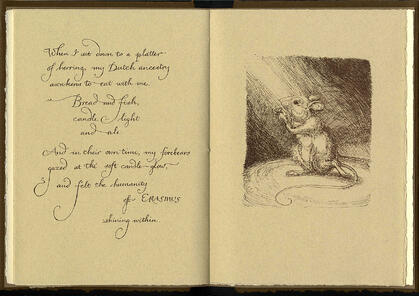 When I sit down to a platter
of herring, my Dutch ancestry
awakens to eat with me.
Bread and fish,
candle light
and ale.
And in their own time, my forebears
gazed at the soft candle-glow,
and felt the humanity
of ERASMUS
shining within.